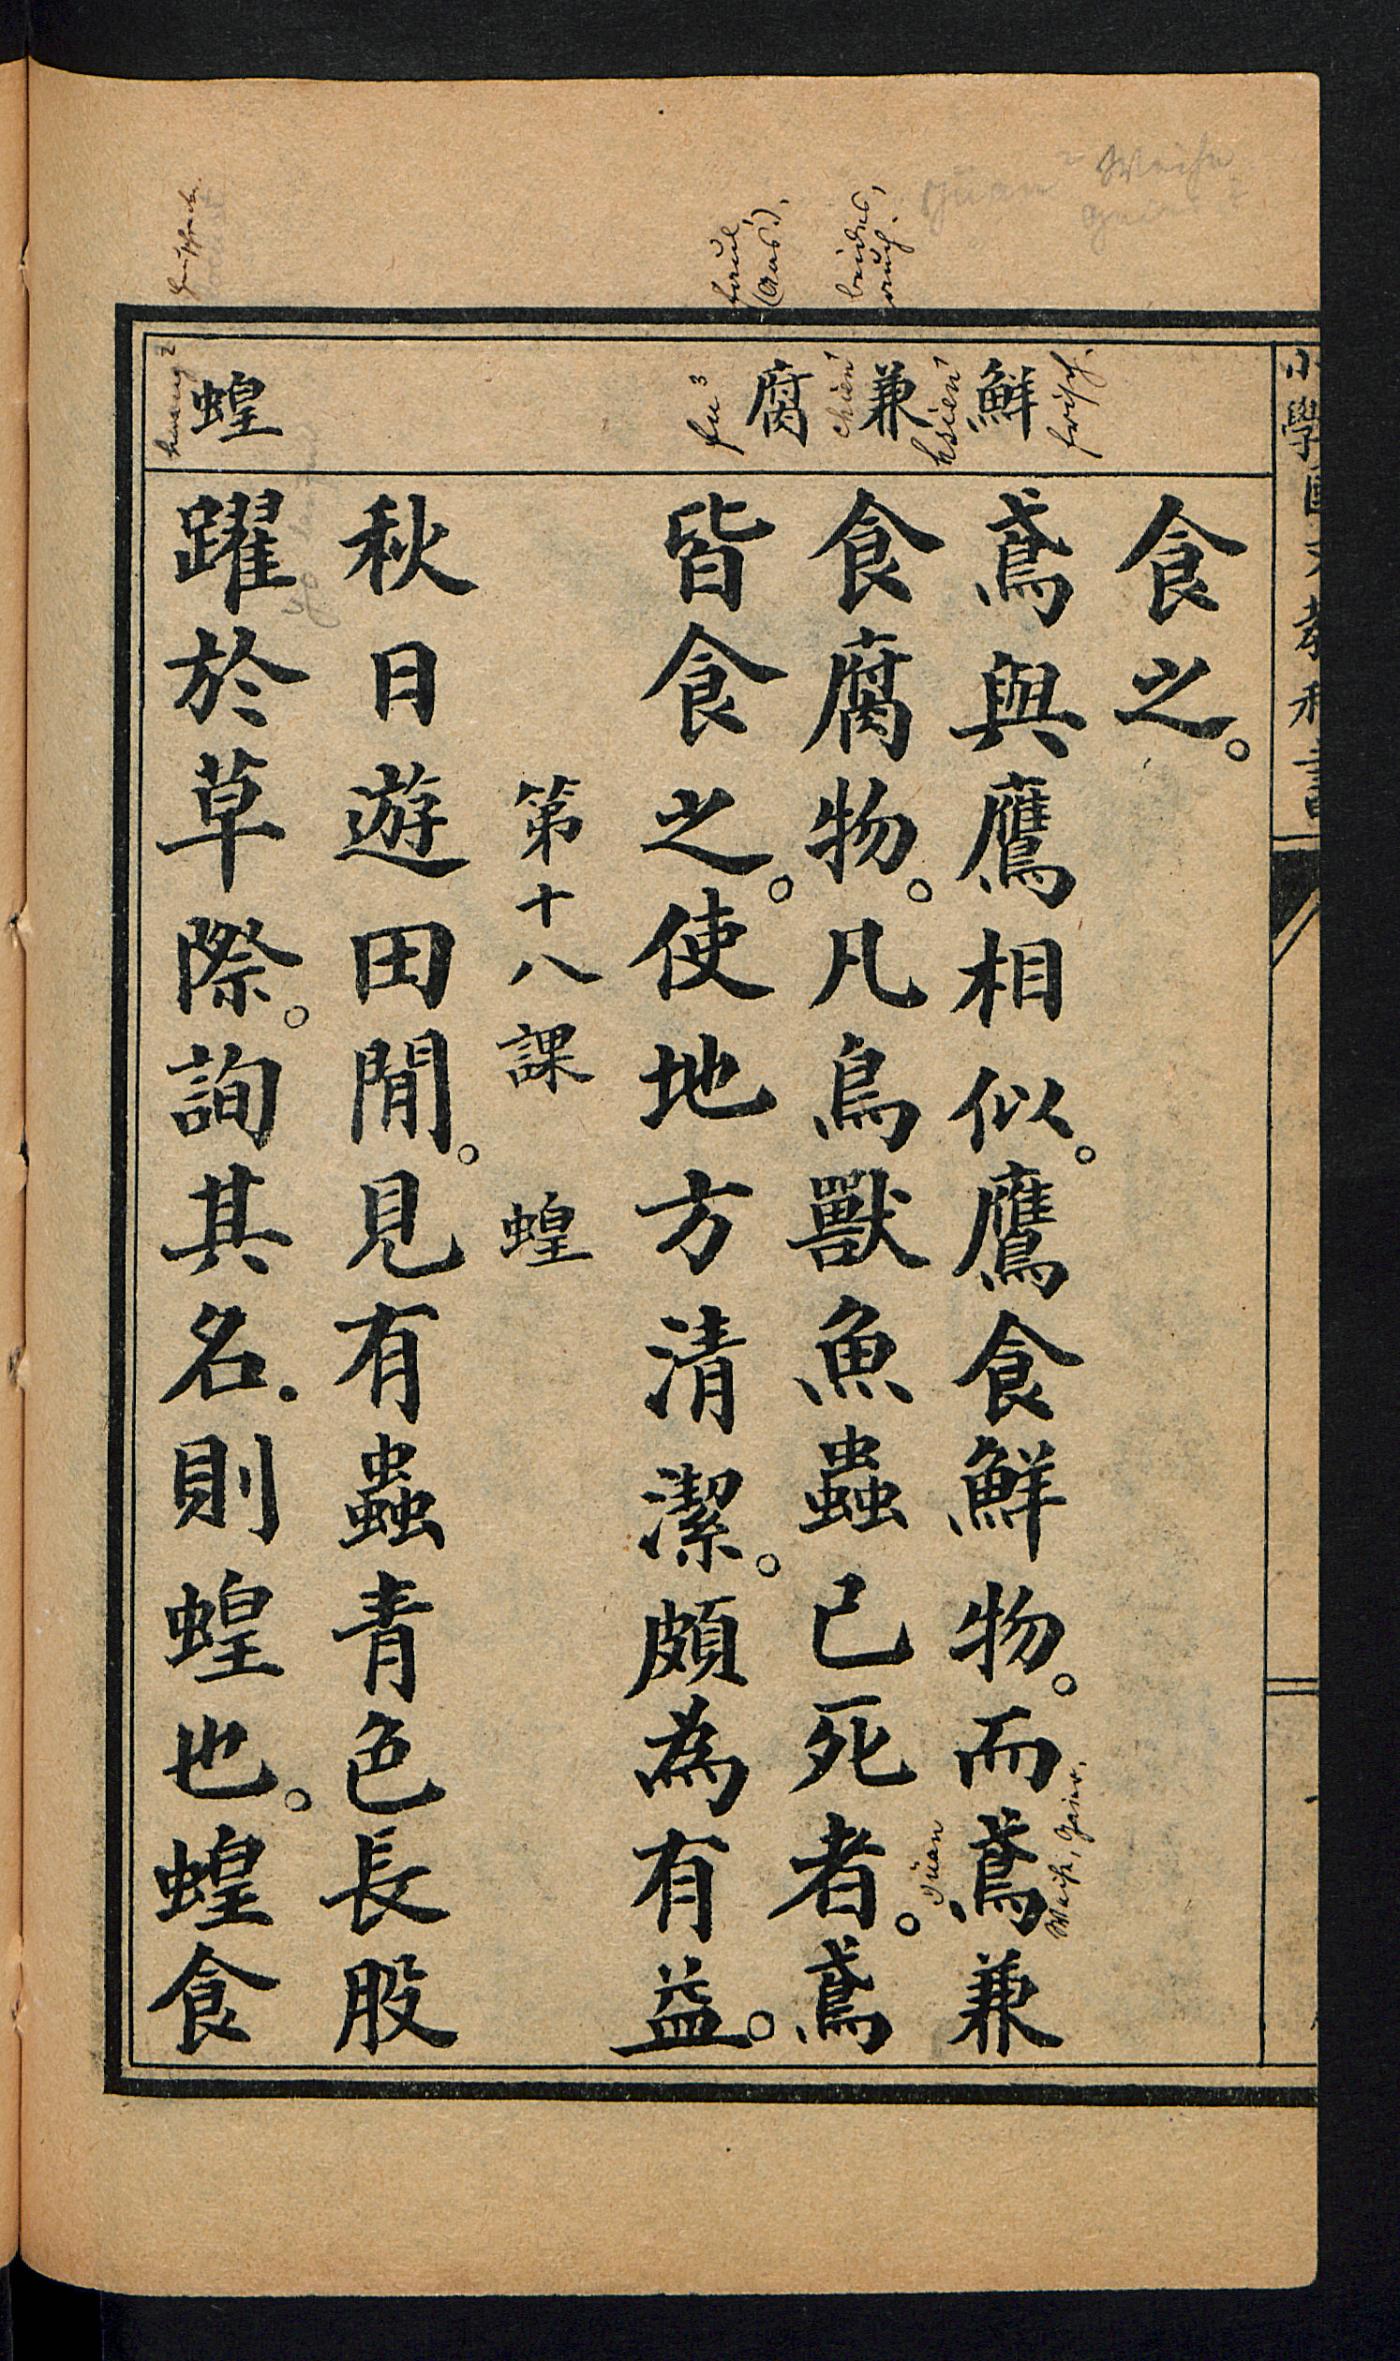 小學國文教科書
鮮
兼
腐
蝗
食之。
鳶與鷹相似。鷹食鮮物。而鳶兼
食腐物。凡鳥獸魚蟲已死者。鳶
皆食之。使地方清潔。頗為有益。
第十八課 蝗
秋日遊田間。見有蟲青色長股
躍於草際。詢其名.則蝗也。蝗食
frisch.
hsien1
chien1
beides,
auch.
fu3
faul
(Aas).
huang2
Heuschrecke.
yüan
Weihe, Geier.
yüan2 Weihe